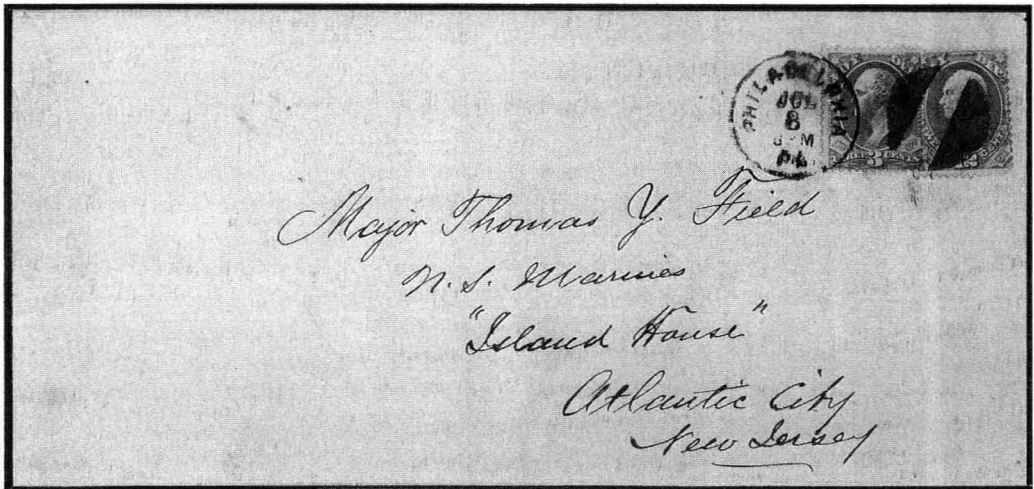 PHILADELPHIA
JUL
8
PM
PA.
3
12
Major Thomas Y. Field
U.S. Marines
"Island House"
Atlantic City
New Jersey